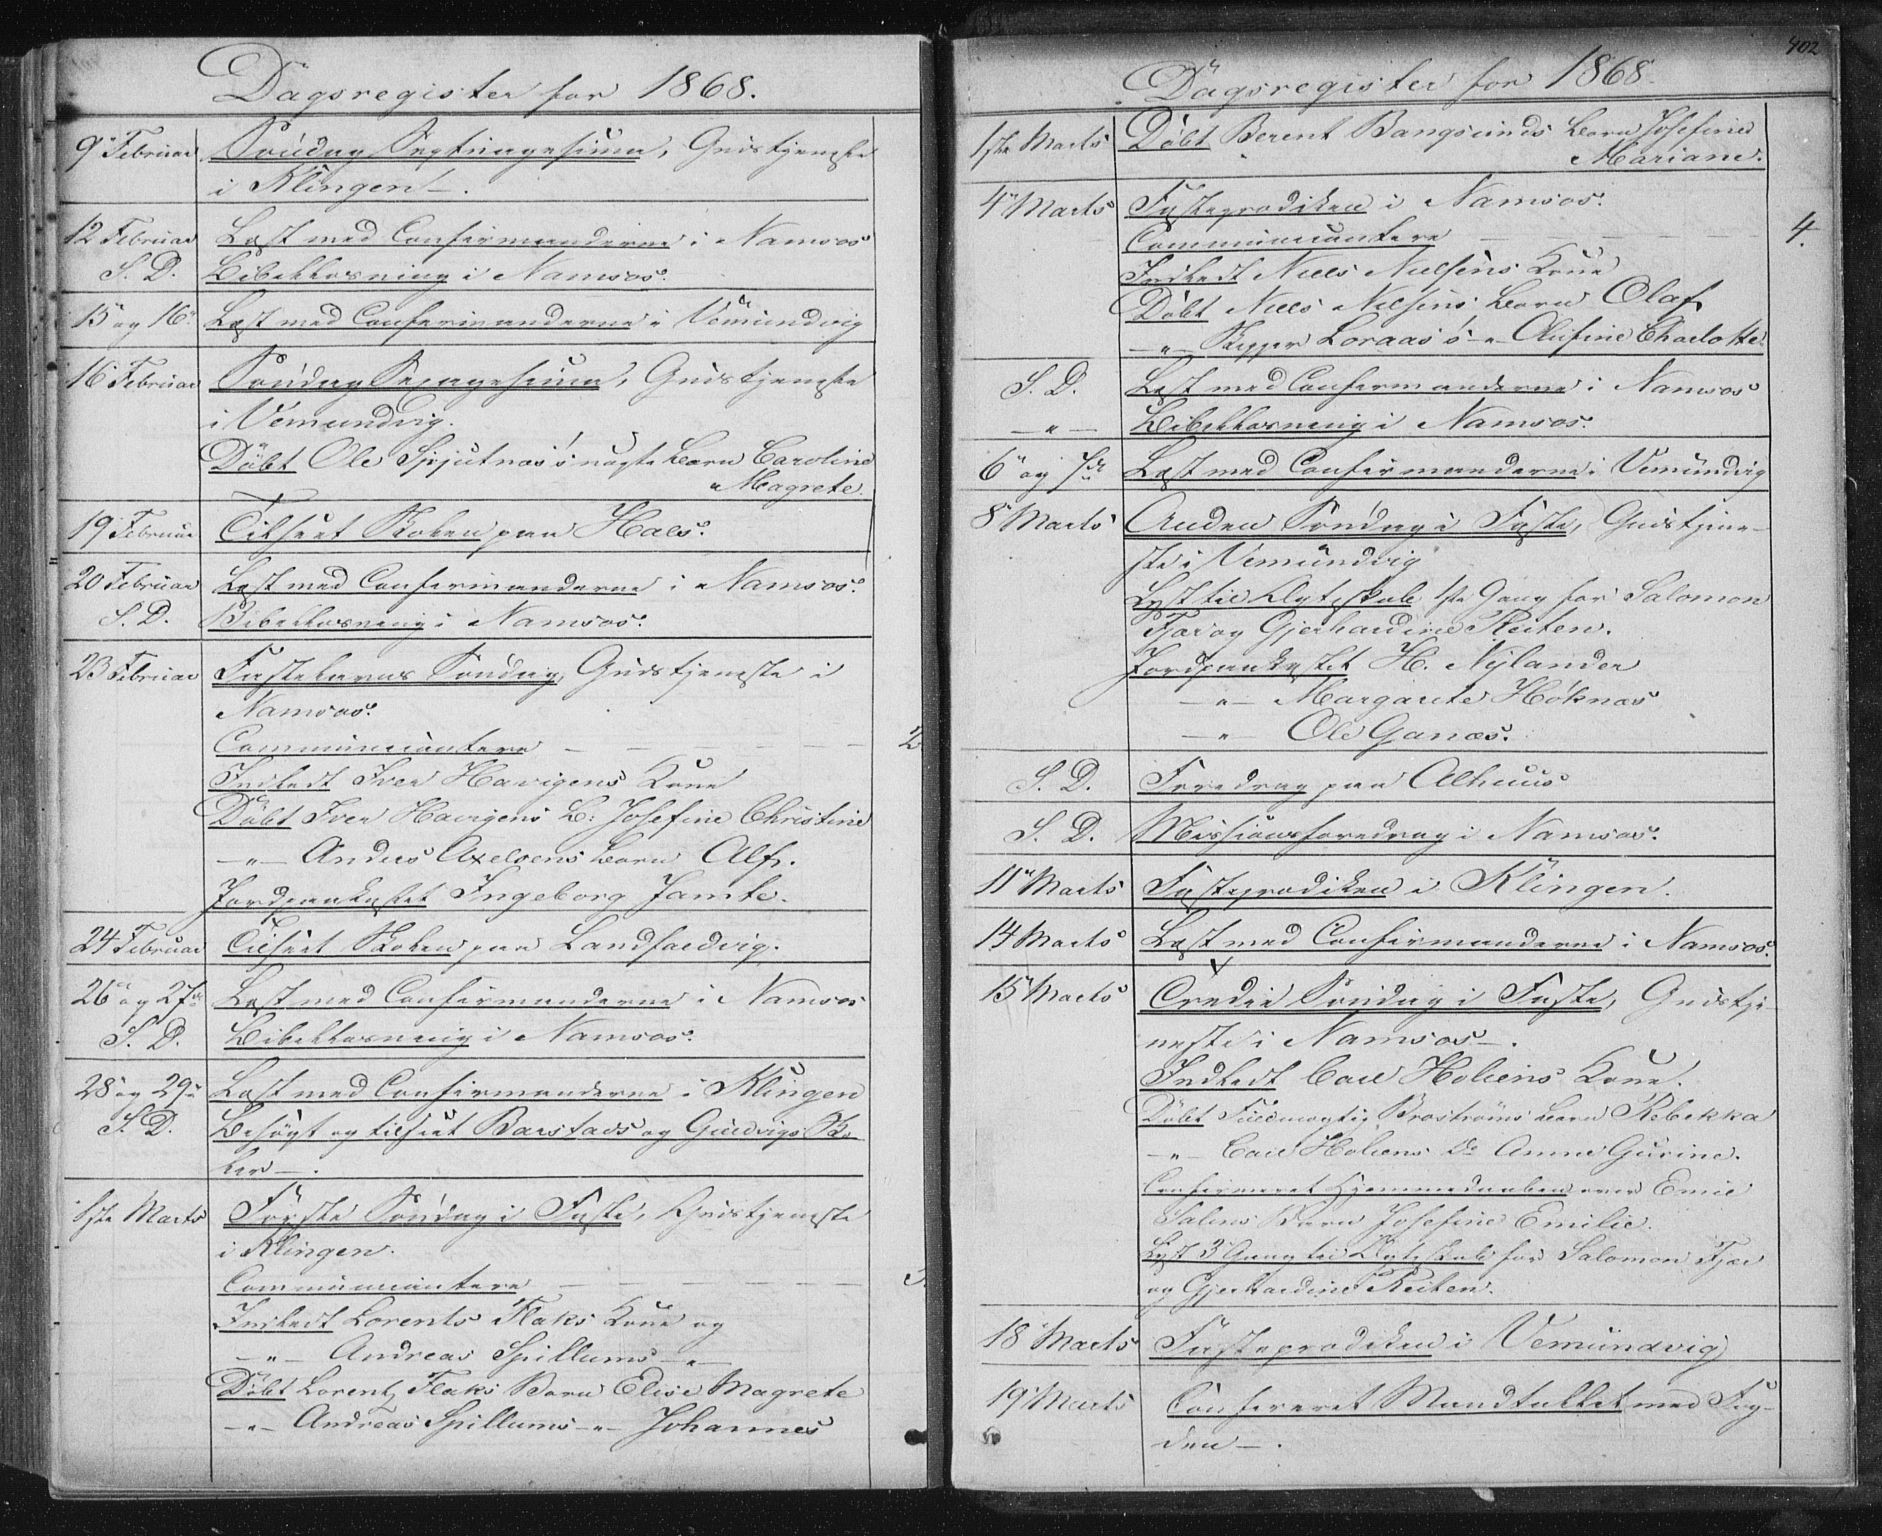 Dagsregister for 1868.
9 Februar Søndag Septuagesima, Gudstjeneste
i Klingen.
12 Februar Læst med Confirmanderne i Namsos
S. D. Bibellæsning i Namsos.
15 og 16 Læst med Confirmanderne i Vemundvig
16 Februar Søndag Sexagesima, Gudstjeneste
i Vemundvig.
Døbt Ole Spjutnæs's uægte Barn Caroline
Magrete.
19 Februar Tilseet Skolen paa Hals.
20 Februar Læst med Confirmanderne i Namsos.
S. D. Bibellæsning i Namsos.
23 Februar Fastelavns Søndag, Gudstjeneste i
Namsos.
Communicantere — — — — 2
Indledt Iver Havigens Kone
Døbt Iver Havigens B: Josefine Christine
—"— Anders Axelsens Barn Alf.
Jordpaakastet Ingeborg Jamte.
24 Februar Tilseet Skolen paa Landfaldvig.
26 og 27de Læst med Confirmanderne i Namsos
S. D. Bibellæsning i Namsos.
28 og 29 Læst med Confirmanderne i Klingen
S. D. Besøgt og tilseet Barstads og Guldvigs Sko
ler —.
1ste Marts Første Søndag i Faste, Gudstjeneste
i Klingen.
Communicantere — — — —
Indledt Lorents Flaks Kone og
—"— Andreas Spillums —"—
Døbt Lorentz Flaks Barn Elise Magrete
—"— Andreas Spillums —"— Johannes
402
Dagsregister for 1868
1ste Marts Døbt Berent Bangsunds Barn Josefine
Mariane.
4 Marts Fasteprædiken i Namsos.
Communicantere — — — — 4.
Indledt Niels Nielsens Kone
Døbt Niels Nielsens Barn Olaf
—"— Skipper Loraas's —"— Olufine Charlotte
S. D. Læst med Confirmanderne i Namsos
—"— Bibellæsning i Namsos.
6 og 7de Læst med Confirmanderne i Vemundvig
8 Marts Anden Søndag i Faste, Gudstjene-
ste i Vemundvig
Lyst til Ægteskab 1ste Gang for Salomon
Fjær og Gjerhardine Reiten.
Jordpaakastet H. Nylander
—"— Margarete Høknæs
—"— Ole Ganæs.
S. D. Foredrag paa Alhuus
S. D. Missionsforedrag i Namsos.
11 Marts Fasteprædiken i Klingen.
14 Marts Læst med Confirmanderne i Namsos.
15 Marts Tredie Søndag i Faste, Gudstje-
neste i Namsos —.
Indledt Carl Holiens Kone.
Døbt Fuldmægtig Broströms Barn Rebekka
—"— Carl Holiens Do Anne Gurine.
Confirmeret Hjemmedaaben over Emil
Salens Barn Josefine Emilie.
Lyst 3 Gang til Ægteskab for Salomon Fjær
og Gjerhardine Reiten.
18 Marts Fasteprædiken i Vemundvig
19 Marts Confereret Mandtallet med Fog-
den —.